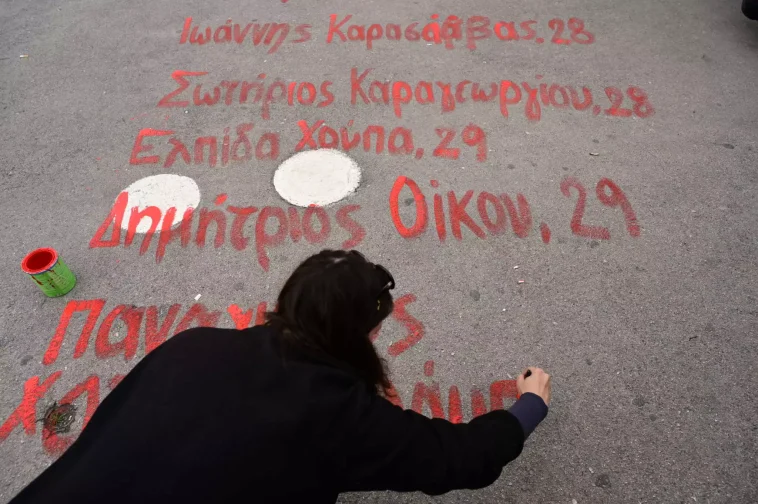 Ιωάννης Καρασάββας, 28
Σωτήριος Καραγεωργίου, 28
Ελπίδα Χούπα, 29
Δημήτριος Οίκου, 29